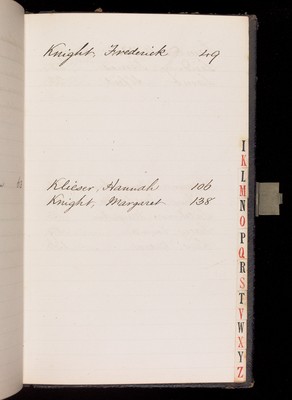 Knight, Frederick 49
Klieser, Hannah 106
Knight, Margaret 138
I
K
L
M
N
O
P
Q
R
S
T
V
W
X
Y
Z